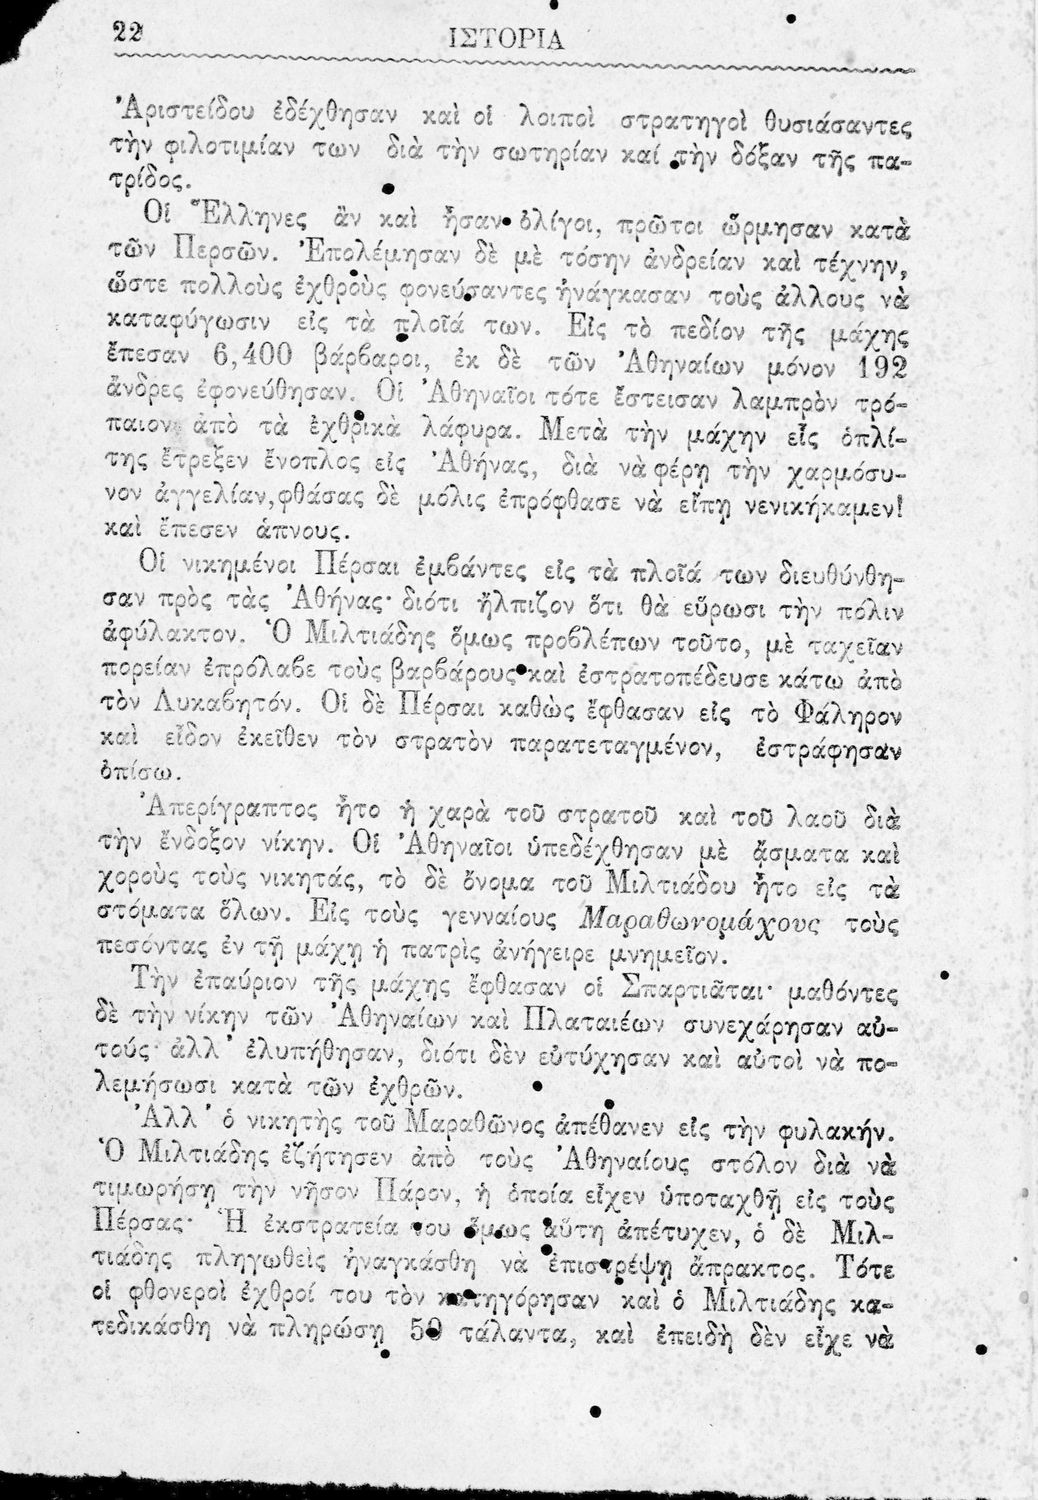 22
ΙΣΤΟΡΙΑ
Ἀριστείδου ἐδέχθησαν καὶ οἱ λοιποὶ στρατηγοὶ θυσιάσαντες
τὴν φιλοτιμίαν των διὰ τὴν σωτηρίαν καί τὴν δόξαν τῆς πα-
τρίδος.
Οἱ Ἕλληνες ἂν καὶ ἦσαν ὀλίγοι, πρῶτοι ὥρμησαν κατὰ
τῶν Περσῶν. Ἐπολέμησαν δὲ μὲ τόσην ἀνδρείαν καὶ τέχνην,
ὥστε πολλοὺς ἐχθροὺς φονεύσαντες ἠνάγκασαν τοὺς ἄλλους νὰ
καταφύγωσιν εἰς τὰ πλοῖά των. Εἰς τὸ πεδίον τῆς μάχης
ἔπεσαν 6,400 βάρβαροι, ἐκ δὲ τῶν Ἀθηναίων μόνον 192
ἄνδρες ἐφονεύθησαν. Οἱ Ἀθηναῖοι τότε ἔστεισαν λαμπρὸν τρό-
παιον ἀπὸ τὰ ἐχθρικὰ λάφυρα. Μετὰ τὴν μάχην εἷς ὁπλί-
της ἔτρεξεν ἔνοπλος εἰς Ἀθήνας, διὰ νὰ φέρῃ τὴν χαρμόσυ-
νον ἀγγελίαν, φθάσας δὲ μόλις ἐπρόφθασε νὰ εἴπῃ νενικήκαμεν!
καὶ ἔπεσεν ἄπνους.
Οἱ νικημένοι Πέρσαι ἐμβάντες εἰς τὰ πλοῖά των διευθύνθη-
σαν πρὸς τὰς Ἀθήνας· διότι ἤλπιζον ὅτι θὰ εὕρωσι τὴν πόλιν
ἀφύλακτον. Ὁ Μιλτιάδης ὅμως προβλέπων τοῦτο, μὲ ταχεῖαν
πορείαν ἐπρόλαβε τοὺς βαρβάρους καὶ ἐστρατοπέδευσε κάτω ἀπὸ
τὸν Λυκαβητόν. Οἱ δὲ Πέρσαι καθὼς ἔφθασαν εἰς τὸ Φάληρον
καὶ εἶδον ἐκεῖθεν τὸν στρατὸν παρατεταγμένον, ἐστράφησαν
ὀπίσω.
Ἀπερίγραπτος ἦτο ἡ χαρὰ τοῦ στρατοῦ καὶ τοῦ λαοῦ διὰ
τὴν ἔνδοξον νίκην. Οἱ Ἀθηναῖοι ὑπεδέχθησαν μὲ ᾄσματα καὶ
χοροὺς τοὺς νικητάς, τὸ δὲ ὄνομα τοῦ Μιλτιάδου ἦτο εἰς τὰ
στόματα ὅλων. Εἰς τοὺς γενναίους Μαραθωνομάχους τοὺς
πεσόντας ἐν τῇ μάχῃ ἡ πατρὶς ἀνήγειρε μνημεῖον.
Τὴν ἐπαύριον τῆς μάχης ἔφθασαν οἱ Σπαρτιᾶται· μαθόντες
δὲ τὴν νίκην τῶν Ἀθηναίων καὶ Πλαταιέων συνεχάρησαν αὐ-
τούς· ἀλλ’ ἐλυπήθησαν, διότι δὲν εὐτύχησαν καὶ αὐτοὶ νὰ πο-
λεμήσωσι κατὰ τῶν ἐχθρῶν.
Ἀλλ’ ὁ νικητὴς τοῦ Μαραθῶνος ἀπέθανεν εἰς τὴν φυλακήν.
Ὁ Μιλτιάδης ἐζήτησεν ἀπὸ τοὺς Ἀθηναίους στόλον διὰ νὰ
τιμωρήσῃ τὴν νῆσον Πάρον, ἡ ὁποία εἶχεν ὑποταχθῆ εἰς τοὺς
Πέρσας· Ἡ ἐκστρατεία του ὅμως αὕτη ἀπέτυχεν, ὁ δὲ Μιλ-
τιάδης πληγωθεὶς ἠναγκάσθη νὰ ἐπιστρέψῃ ἄπρακτος. Τότε
οἱ φθονεροὶ ἐχθροί του τὸν κατηγόρησαν καὶ ὁ Μιλτιάδης κα-
τεδικάσθη νὰ πληρώσῃ 50 τάλαντα, καὶ ἐπειδὴ δὲν εἶχε νὰ